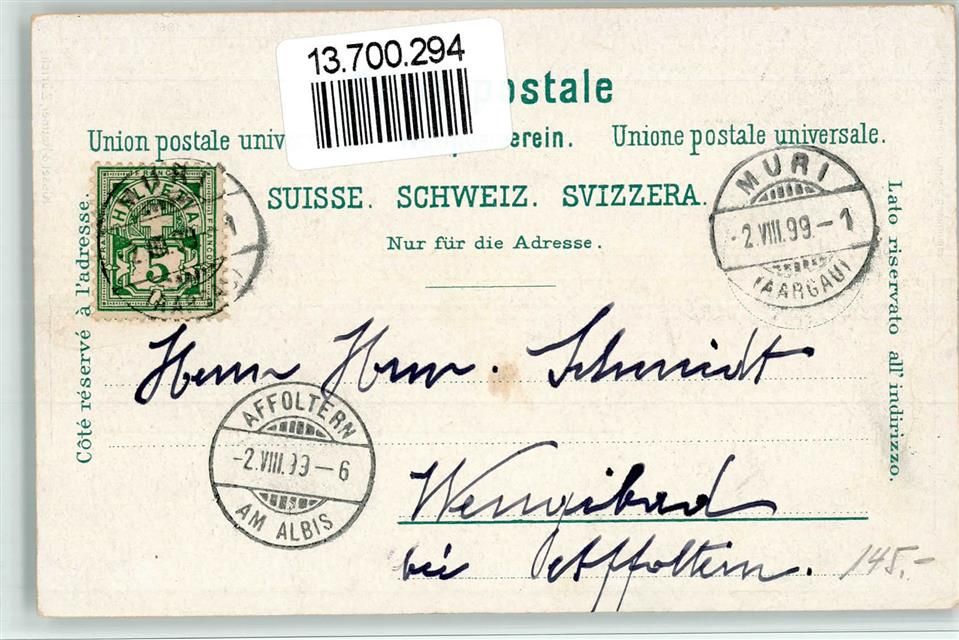 13.700.294
postale
Union postale univ
verein.
Unione postale universale.
SUISSE. SCHWEIZ. SVIZZERA.
Nur für die Adresse.
Côté réservé à l'adresse.
Lato riservato all' indirizzo.
FRANCO
HELVETIA
5
MURI
-2.VIII.99.-1
(AARGAU)
Herrn Herm. Schmidt
AFFOLTERN
-2.VIII.99-6
AM ALBIS
Wengibad
bei Affoltern.
145.-